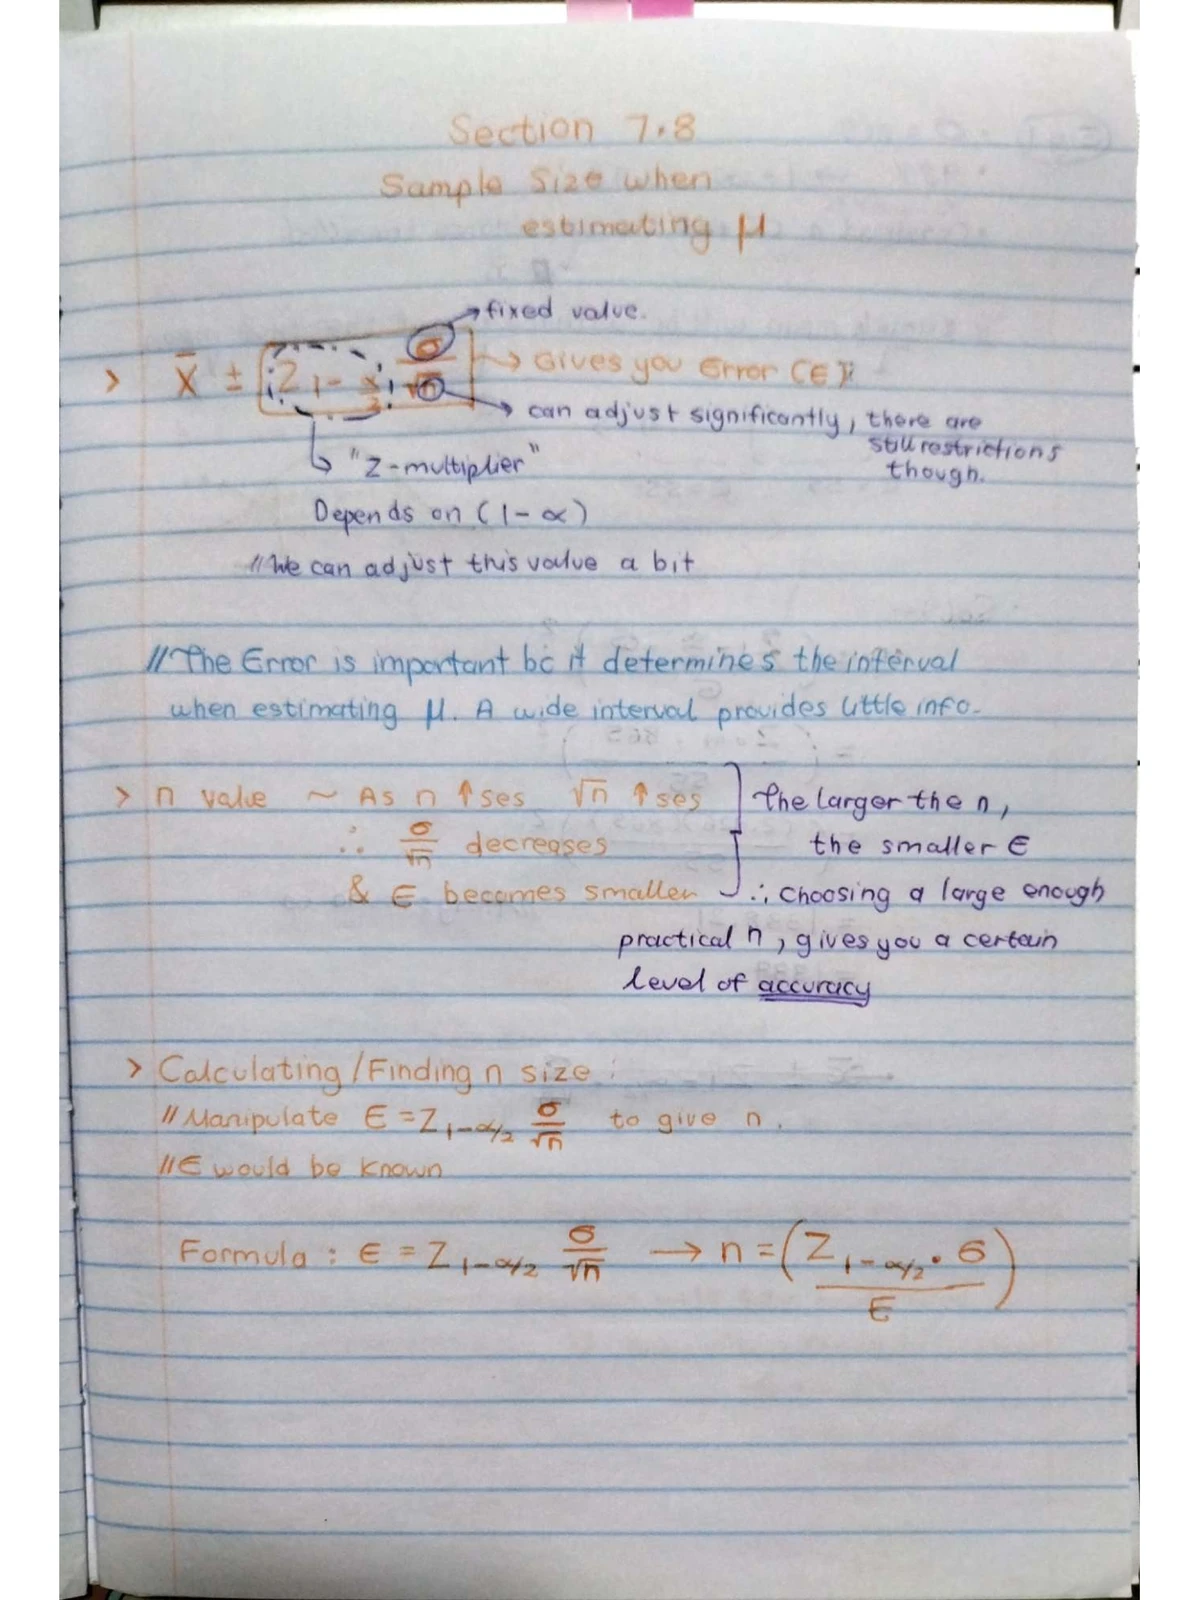 Section 7.8
Sample Size when
estimating μ
→ fixed value.
> X̄ ± Z 1-α/2 σ/√n → Gives you Error (E)
→ can adjust significantly, there are
still restrictions
though.
↳ "Z-multiplier"
Depends on (1-α)
//We can adjust this value a bit
//The Error is important bc it determines the interval
when estimating μ. A wide interval provides little info.
> n value ~ As n ↑ses √n ↑ses
∴ σ/√n decreases
& E becomes smaller
The larger the n,
the smaller E
∴ choosing a large enough
practical n, gives you a certain
level of accuracy
> Calculating/Finding n size :
//Manipulate E = Z 1-α/2 σ/√n to give n.
//E would be known
Formula : E = Z 1-α/2 σ/√n → n = (Z 1-α/2 · σ / E)